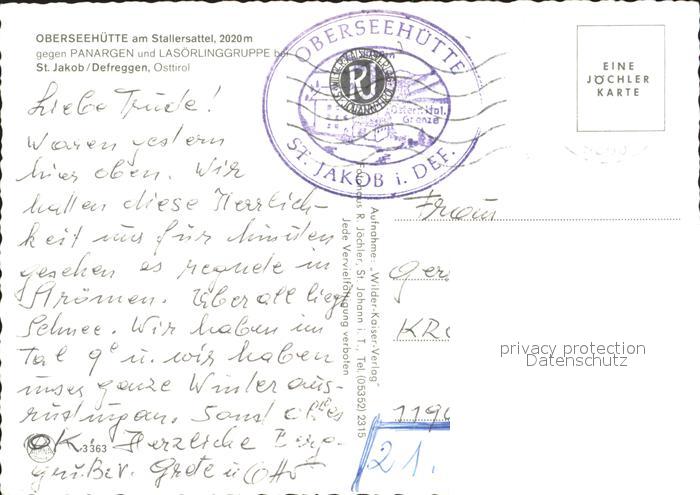 OBERSEEHÜTTE am Stallersattel, 2020 m
gegen PANARGEN und LASÖRLINGGRUPPE
St. Jakob/Defreggen, Osttirol
Liebe Trude!
Waren gestern
hier oben. Wir
hatten diese Herrlich-
keit nur für Minuten
gesehen es regnete in
Strömen. Überall liegt
Schnee. Wir haben im
Tal 9° u. wir haben
unsere ganze Winteraus-
rüstung an. Sonst alles
OK. Herzliche Berg-
Grete u. Otto
3363
OBERSEEHÜTTE
Österr. Ital.
Grenze
ST. JAKOB i. DEF.
RJ
Aufnahme: „Wilder-Kaiser-Verlag"
R. Jöchler, St. Johann i. T., Tel. (05352) 2315
Jede Vervielfältigung verboten
EINE
JÖCHLER
KARTE
Frau
Ger
KRo
1190
21.
privacy protection
Datenschutz